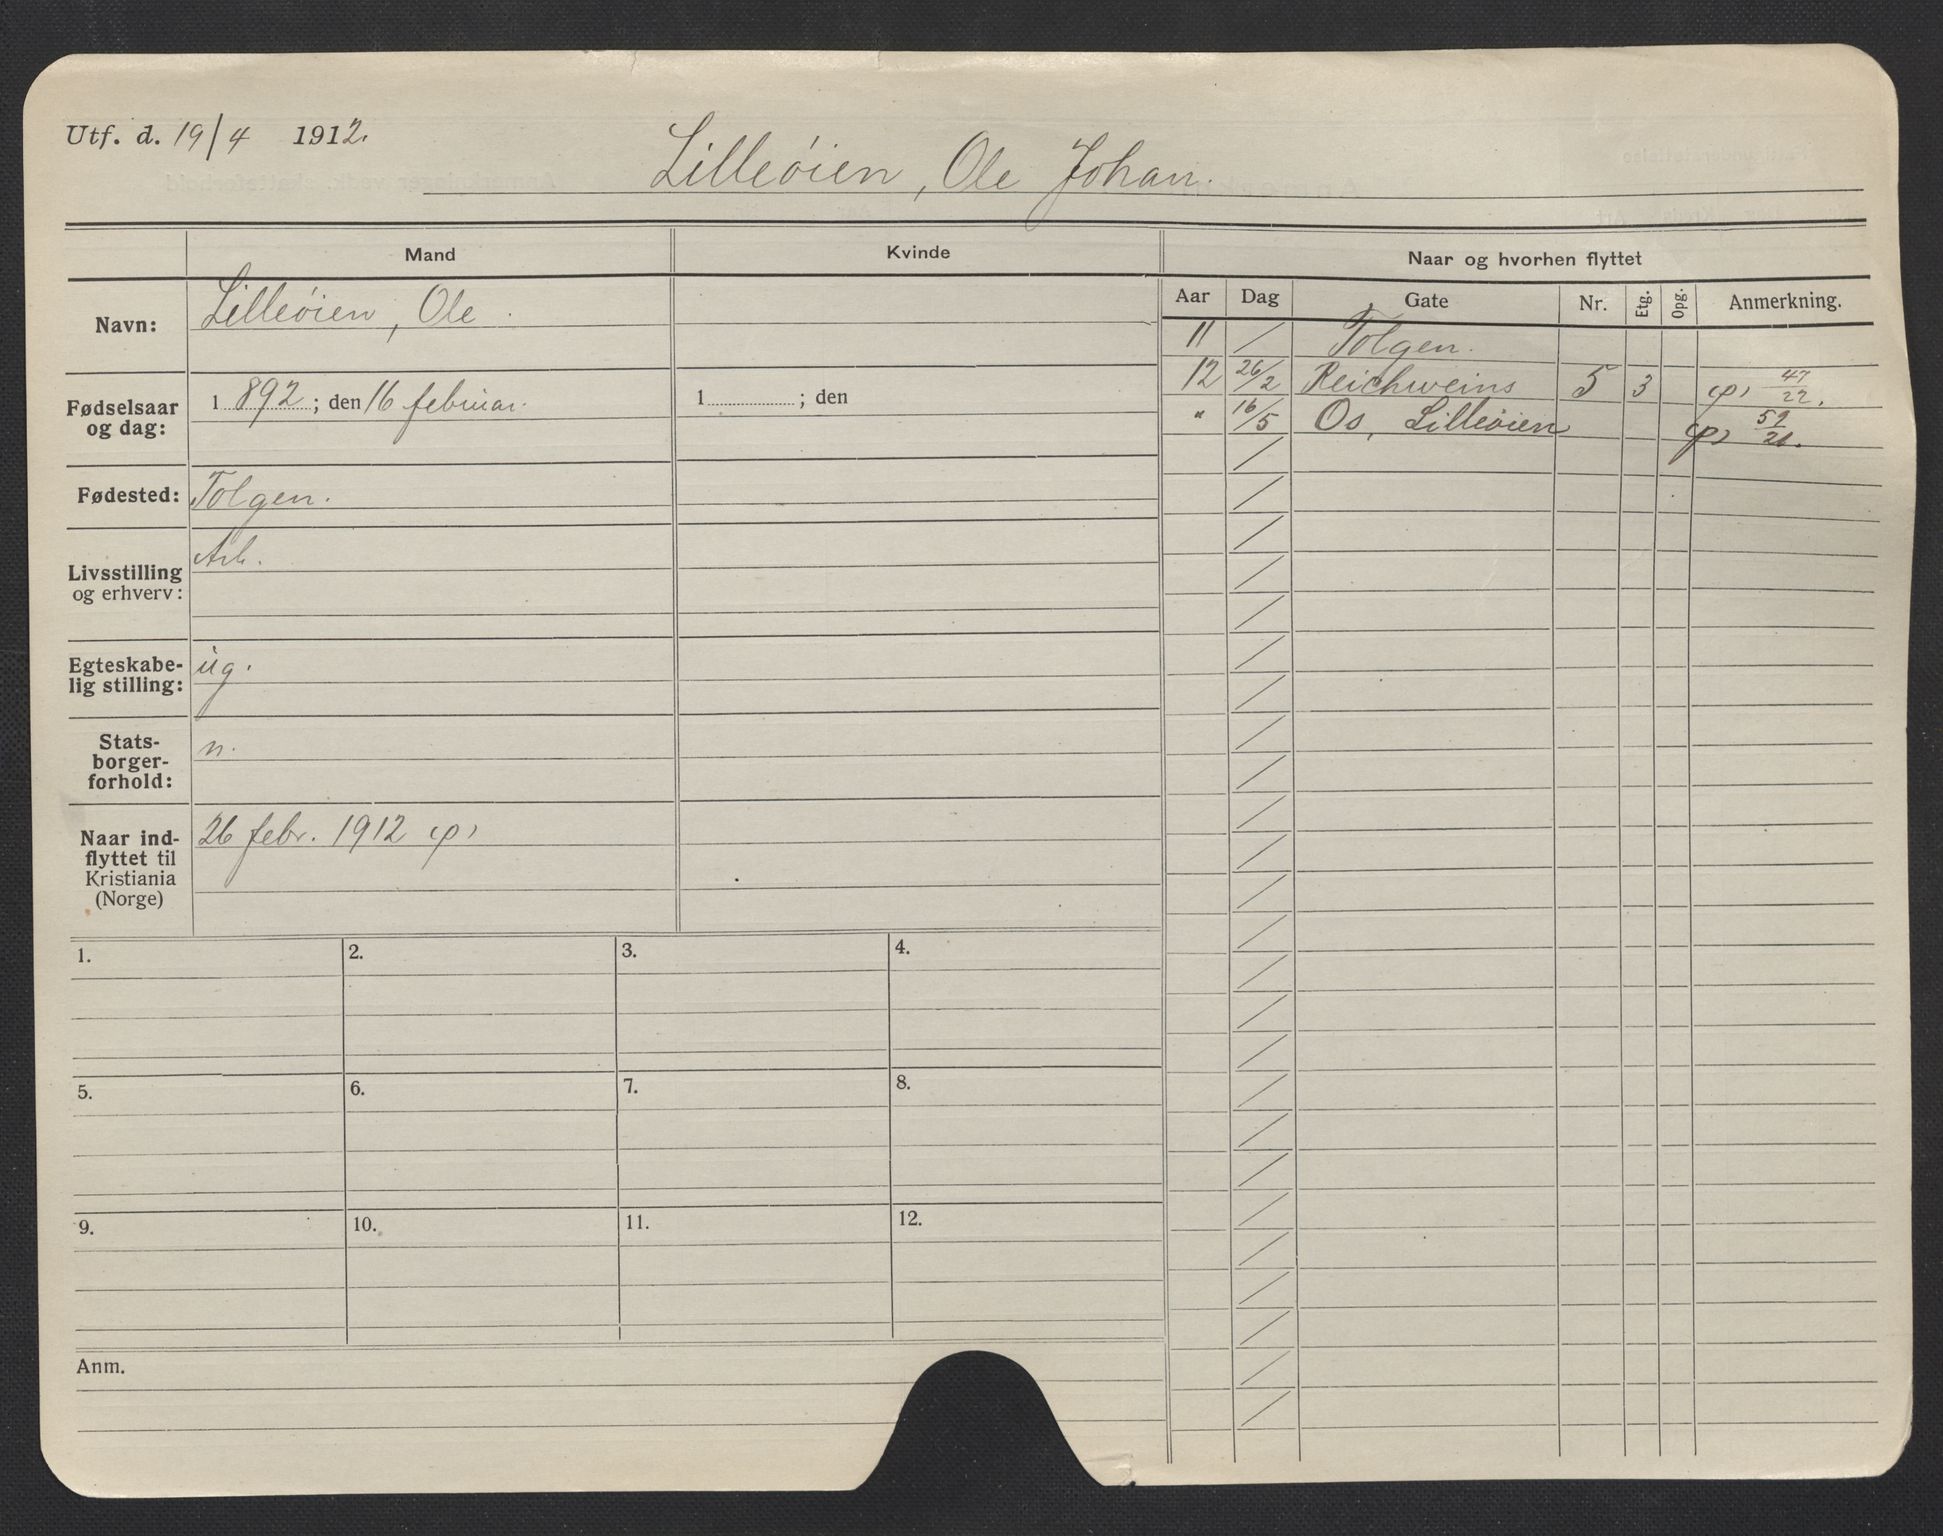 Utf. d. 19/4 1912.
Lilleøien, Ole Johan.
Mand
Kvinde
Naar og hvorhen flyttet
Aar Dag Gate Nr. Etg. Opg. Anmerkning.
Navn: Lilleøien, Ole.
Fødselsaar og dag: 1892; den 16 februar.
1 ; den
Fødested: Tolgen.
Livsstilling og erhverv: Arb.
Egteskabe-
lig stilling: ug.
Stats-
borger-
forhold: n.
Naar ind-
flyttet til
Kristiania
(Norge) 26 febr. 1912 (p)
11 / Tolgen.
12 26/2 Reichweins 5 3 (p) 47/22.
" 16/5 Os, Lilleøien (p) 59/21.
1. 2. 3. 4.
5. 6. 7. 8.
9. 10. 11. 12.
Anm.